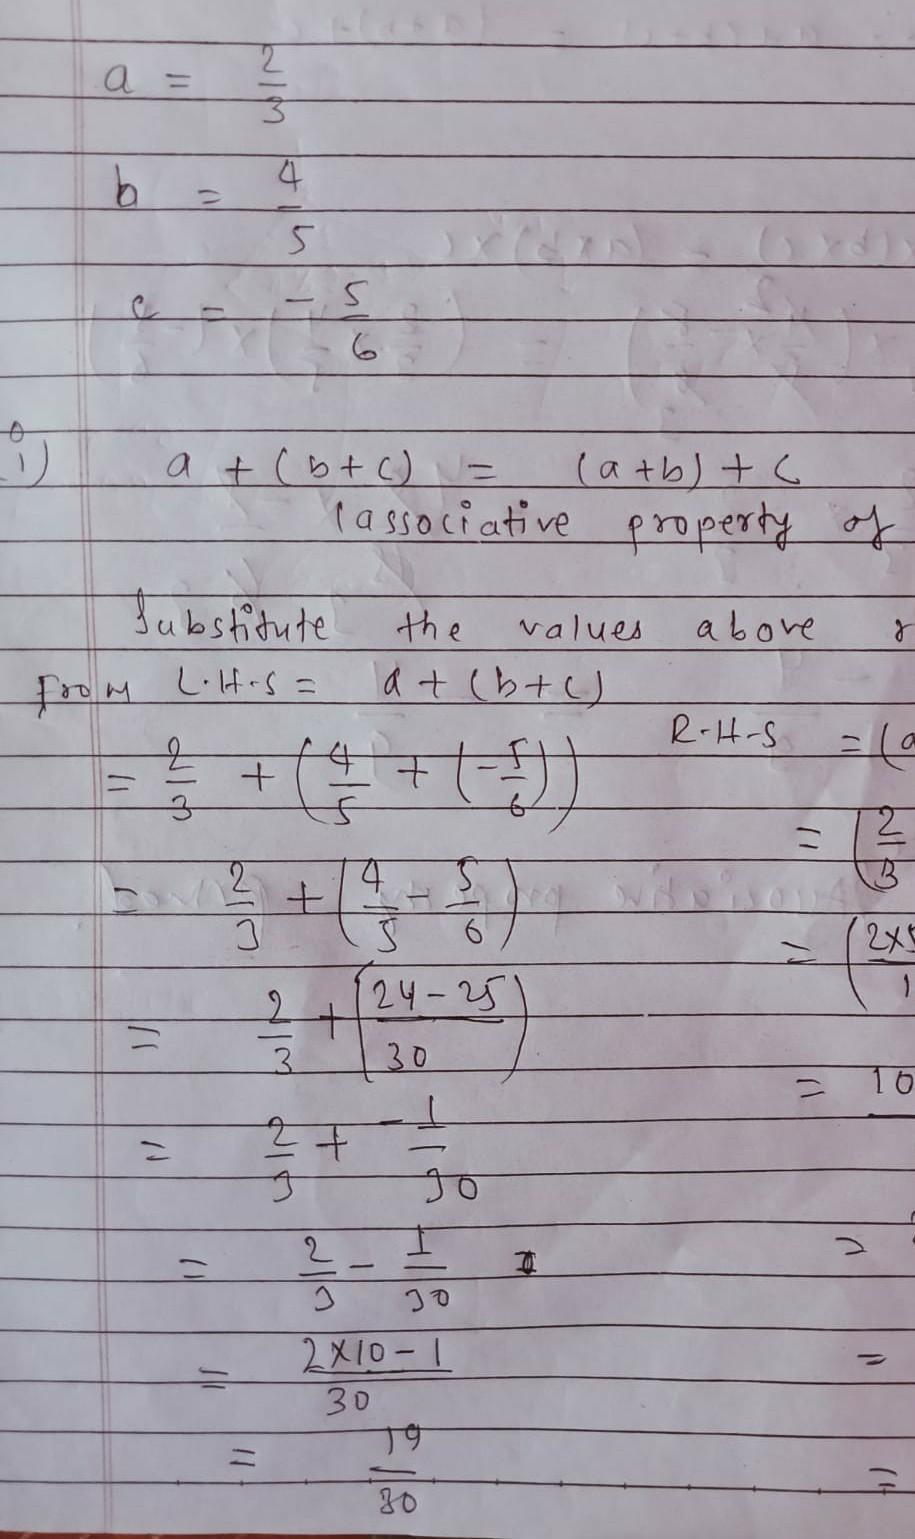 a = 2/3
b = 4/5
c = -5/6
i) a + (b+c) = (a+b) + c
(associative property of
Substitute the values above r
From L.H.S = a + (b+c)
R.H.S = (a
= 2/3 + (4/5 + (-5/6))
= (2/3
= 2/3 + (4/5 - 5/6)
= (2×5/1
= 2/3 + (24-25/30)
= 10
= 2/3 + -1/30
= 2/3 - 1/30
=
= 2×10-1/30
=
= 19/30
=